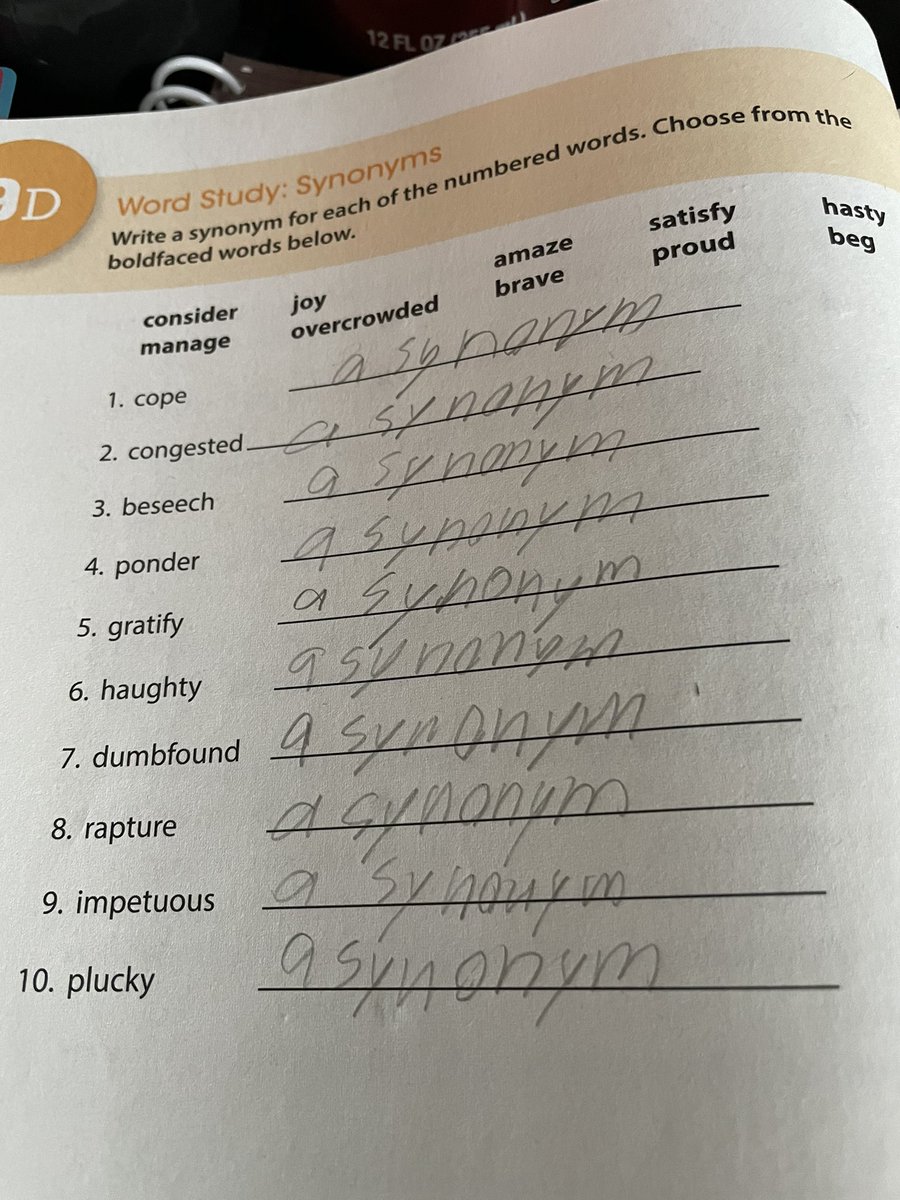 12 FL OZ
D
Word Study: Synonyms
Write a synonym for each of the numbered words. Choose from the
boldfaced words below.
consider joy amaze satisfy hasty
manage overcrowded brave proud beg
1. cope a synonym
2. congested a synonym
3. beseech a synonym
4. ponder a synonym
5. gratify a synonym
6. haughty a synonym
7. dumbfound a synonym
8. rapture a synonym
9. impetuous a synonym
10. plucky a synonym